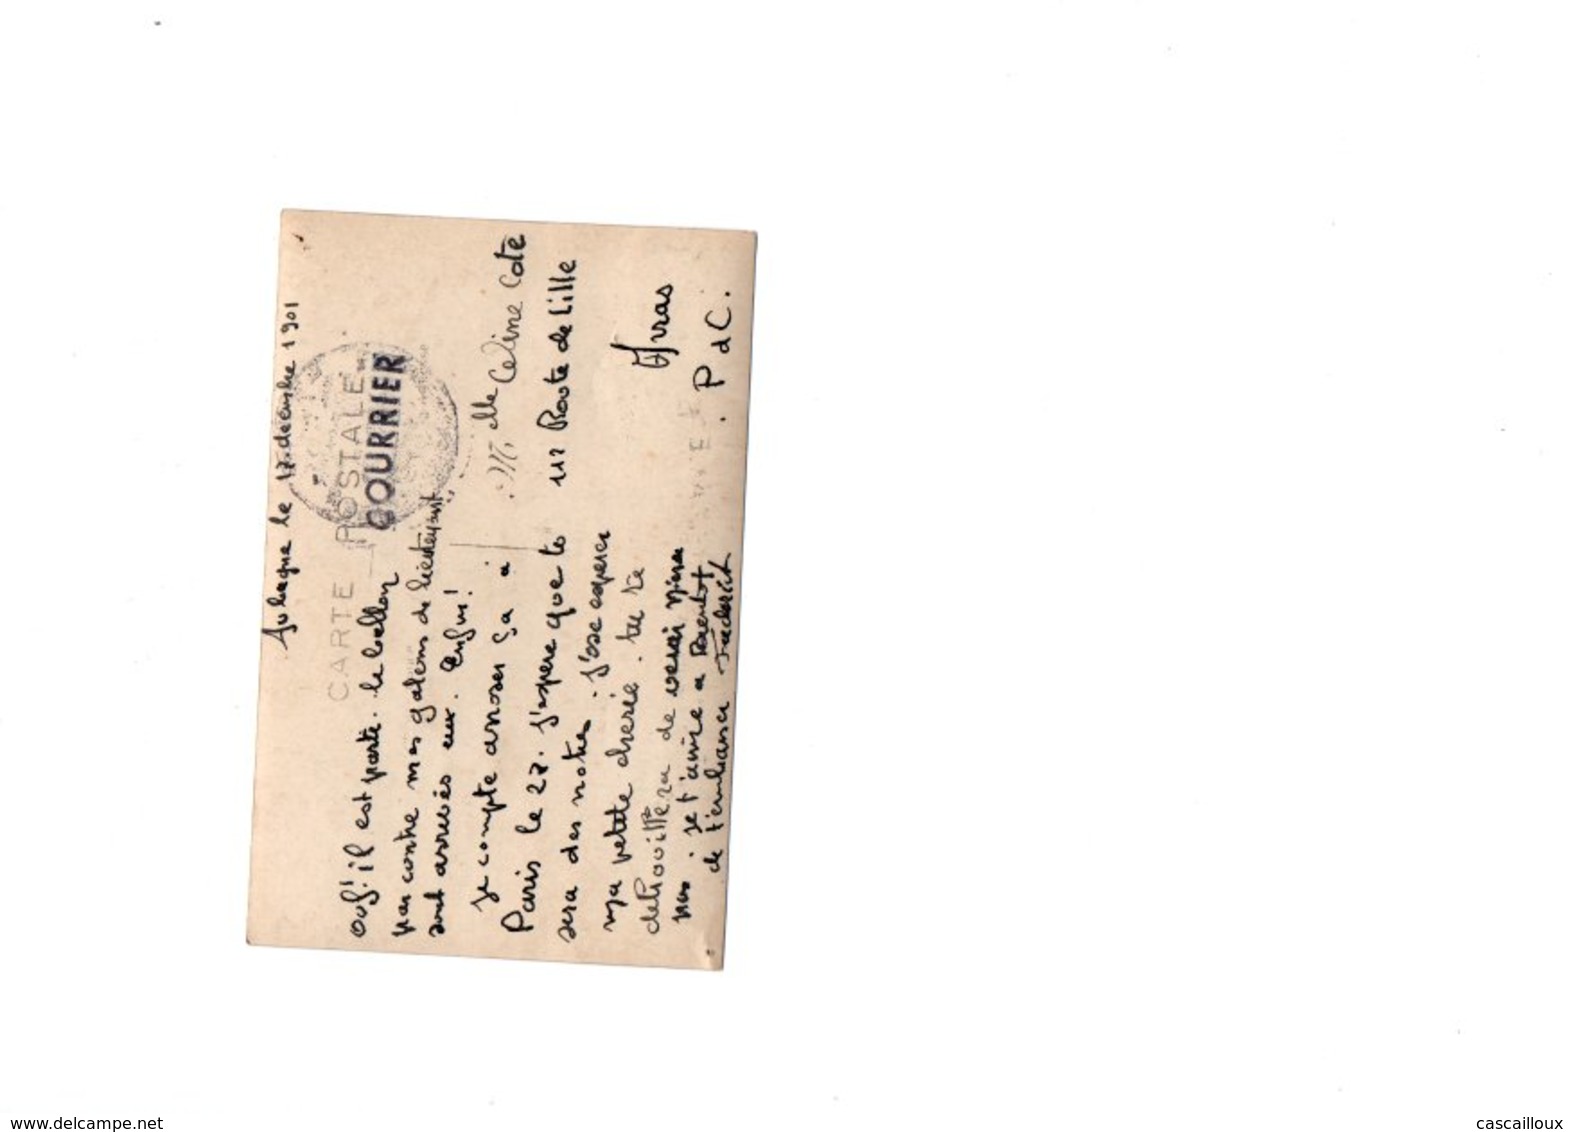 le 17 decembre 1901
CARTE POSTALE
COURRIER
ouf! il est parti. le ballon
par contre mes galons de lieutenant
sont arrivés eux. Enfin!
je compte arroser ça à
Paris le 27. J'espere que to
sera des notres. J'ose esperer
ma petite cherie. tu te
de venir
pas. je t'aime a Bientot
de t'embrasser Frederic
Melle Celine Cote
112 Route de Lille
Arras
. P d C.
www.delcampe.net
cascailloux